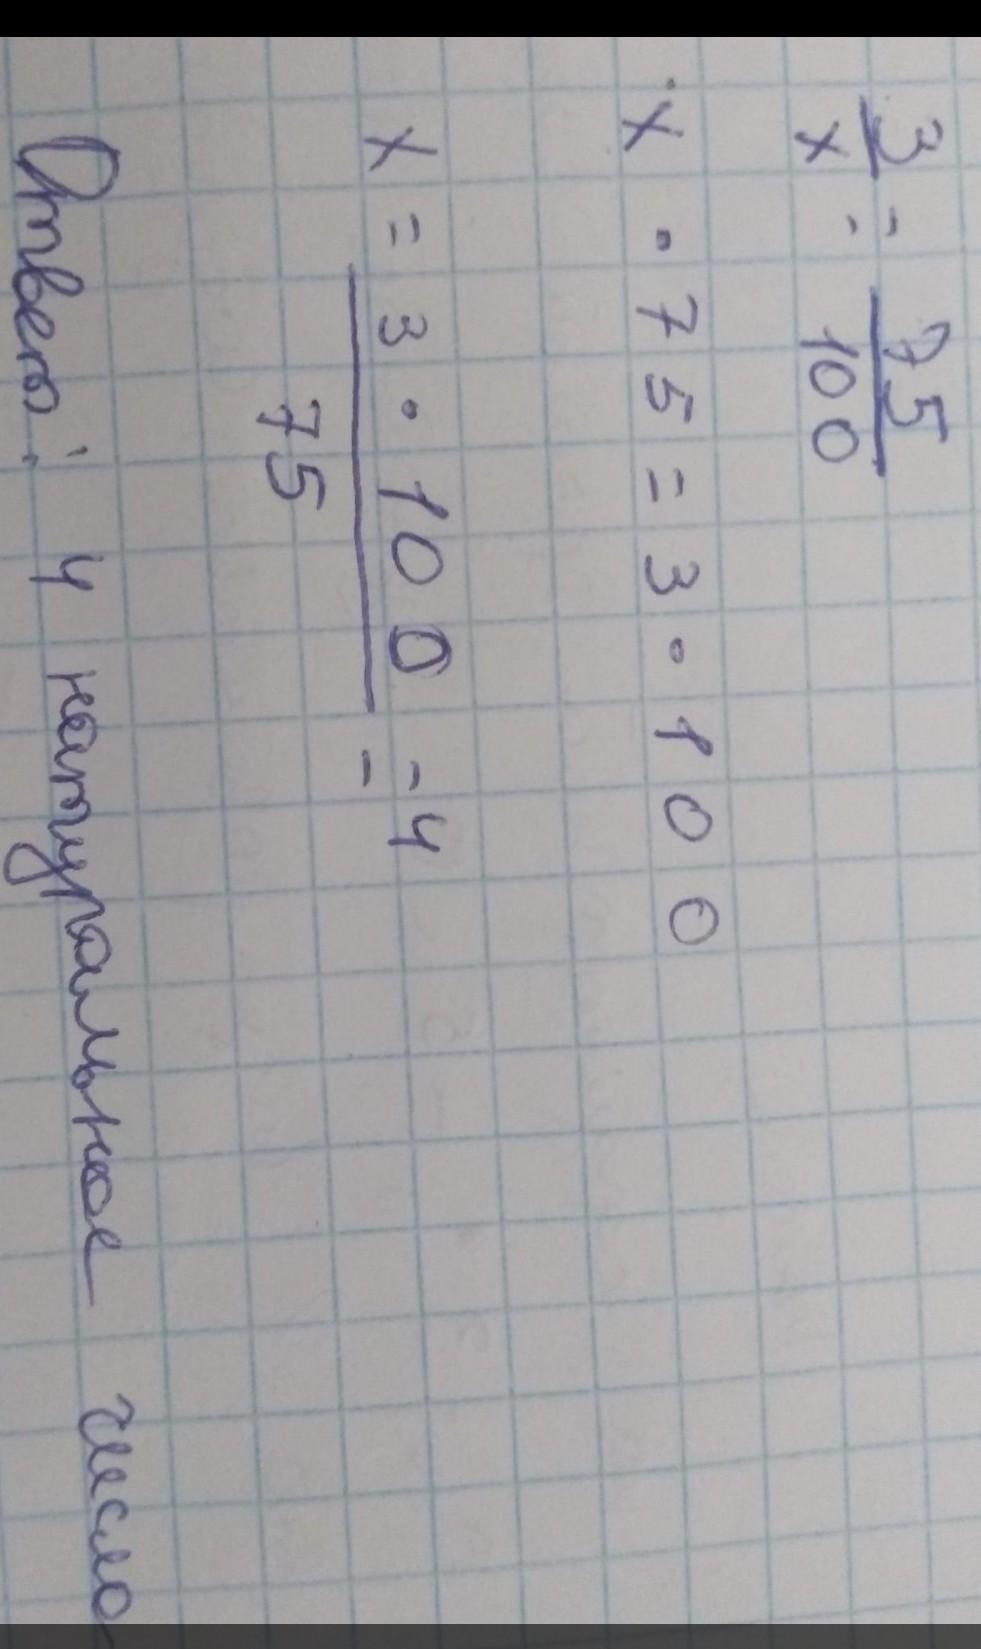 3/x = 75/100
x · 75 = 3 · 100
x = 3 · 100 / 75 = 4
Ответ: 4 натуральное число